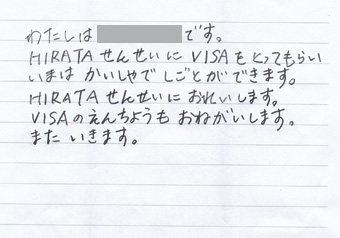 わたしは です。
HIRATAせんせいに VISAをとってもらい
いまは かいしゃで しごとが できます。
HIRATAせんせいに おれいします。
VISAのえんちょうも おねがいします。
また いきます。